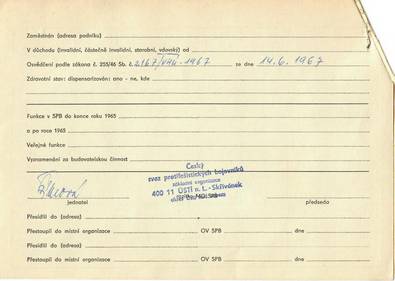 Zaměstnán (adresa podniku)
V důchodu (invalidní, částečně invalidní, starobní, vdovský) od
Osvědčení podle zákona č. 255/46 Sb. č. 2167/VHU-1967 ze dne 14.6.1967
Zdravotní stav: dispensarizován: ano - ne, kde
Funkce v SPB do konce roku 1965
a po roce 1965
Veřejné funkce
Vyznamenání za budovatelskou činnost
Český
svaz protifašistických bojovníků
základní organizace
400 11 ÚSTÍ n. L. - Skřivánek
jednatel předseda
Přesídlil do (adresa)
Přestoupil do místní organizace OV SPB dne
Přesídlil do (adresa)
Přestoupil do místní organizace OV SPB dne